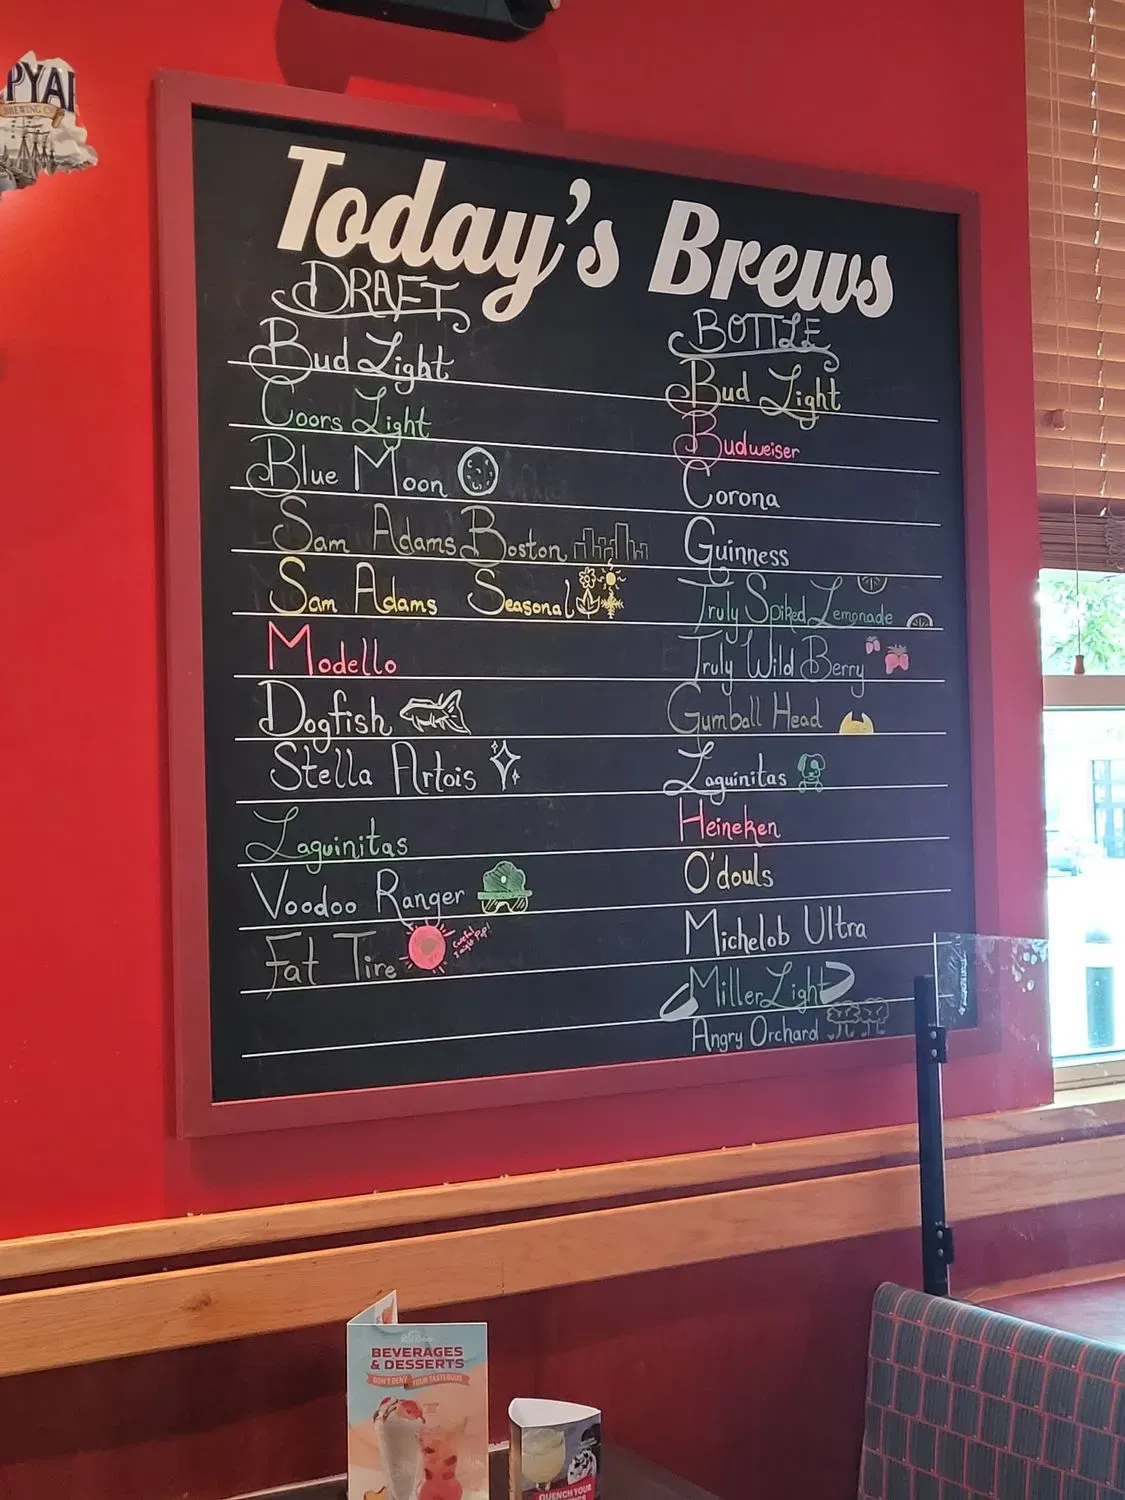 PYAI
BREWING CO
Today's Brews
DRAFT
Bud Light
Coors Light
Blue Moon
Sam Adams Boston
Sam Adams Seasonal
Modello
Dogfish
Stella Artois
Laguinitas
Voodoo Ranger
Fat Tire
Careful
I might Pop!
BOTTLE
Bud Light
Budweiser
Corona
Guinness
Truly Spiked Lemonade
Truly Wild Berry
Gumball Head
Laguinitas
Heineken
O'douls
Michelob Ultra
Miller Light
Angry Orchard
BEVERAGES
& DESSERTS
DON'T DENY YOUR TASTEBUDS
QUENCH YOUR